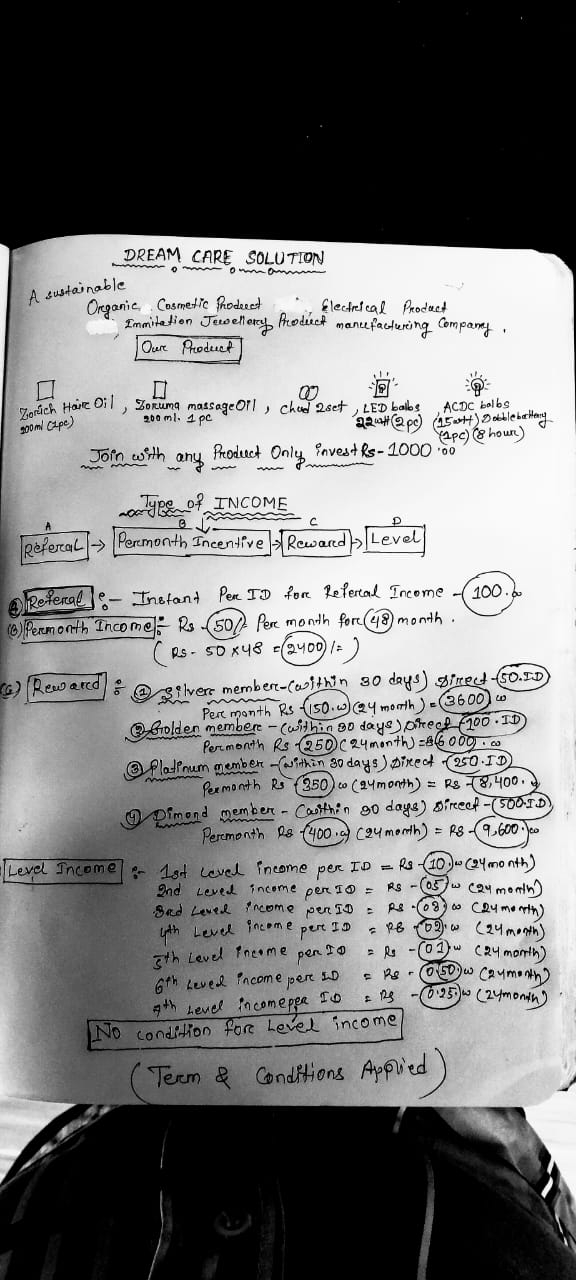 DREAM CARE SOLUTION
A sustainable
Organic, Cosmetic Product , Electrical Product
Immitation Jewellery Product manufacturing Company.
Our Product
Zorich Haire Oil, Zoruma massage Oil, chud 2set, LED balbs, ACDC bolbs
200ml (1pc) 200 ml. 1 pc 22watt (2pc) (15watt) Dobblebattery
(1pc) (8 hour)
Join with any Product Only invest Rs- 1000.00
Type of INCOME
A B C D
Referal → Permonth Incentive → Reward → Level
(A) Referal :- Instant Per ID for Referal Income - 100.00
(B) Permonth Income :- Rs - 50/- Per month for 48 month.
( Rs - 50 x 48 = 2400/= )
(C) Reward :- (1) Silver member - (within 30 days) Direct - 50.ID
Per month Rs - 150.00 (24 month) = 3600.00
(2) Golden member - (within 30 days) Direct - 100.ID
Permonth Rs - 250 (24 month) = 6000.00
(3) Platinum member - (within 30 days) Direct - 250.ID
Permonth Rs - 350.00 (24month) = Rs - 8,400.00
(4) Dimond member - (within 30 days) Direct - 500.ID
Permonth Rs - 400.00 (24month) = RS - 9,600.00
Level Income :- 1st Level income per ID = Rs - 10.00 (24month)
2nd Level income per ID = Rs - 05.00 (24 month)
3rd Level income per ID = Rs - 03.00 (24 month)
4th Level income per ID = Rs - 02.00 (24 month)
5th Level income per ID = Rs - 01.00 (24 month)
6th Level income per ID = Rs - 0.50.00 (24month)
7th Level income per ID = Rs - 0.25.00 (24month)
No condition for Level income
(Term & Conditions Applied)